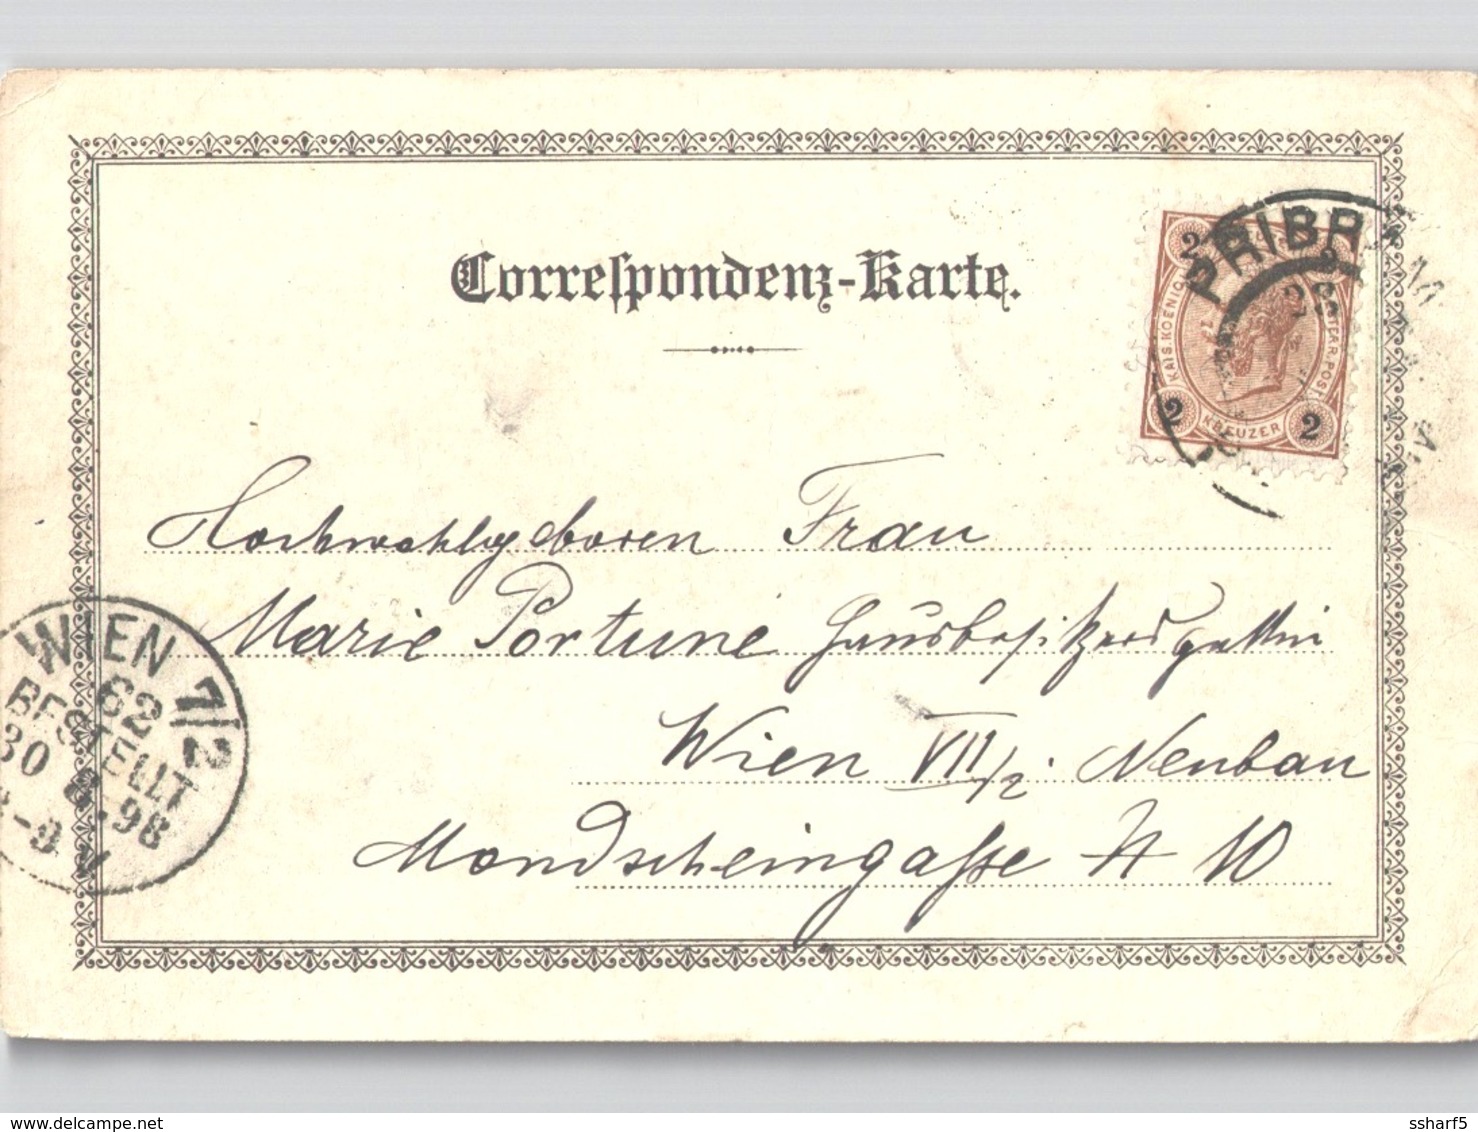 Correspondenz-Karte.
PRIBRAM
28
2 2
KAIS. KOENIGL. OESTERR. POST
2 KREUZER 2
Hochwohlgeboren Frau
Marie Portune Hausbesitzersgattin
Wien VII/2 Neubau
Mondscheingasse N 10
WIEN 7/2
62
BESTELLT
30 98
delcampe.net
ssharf5